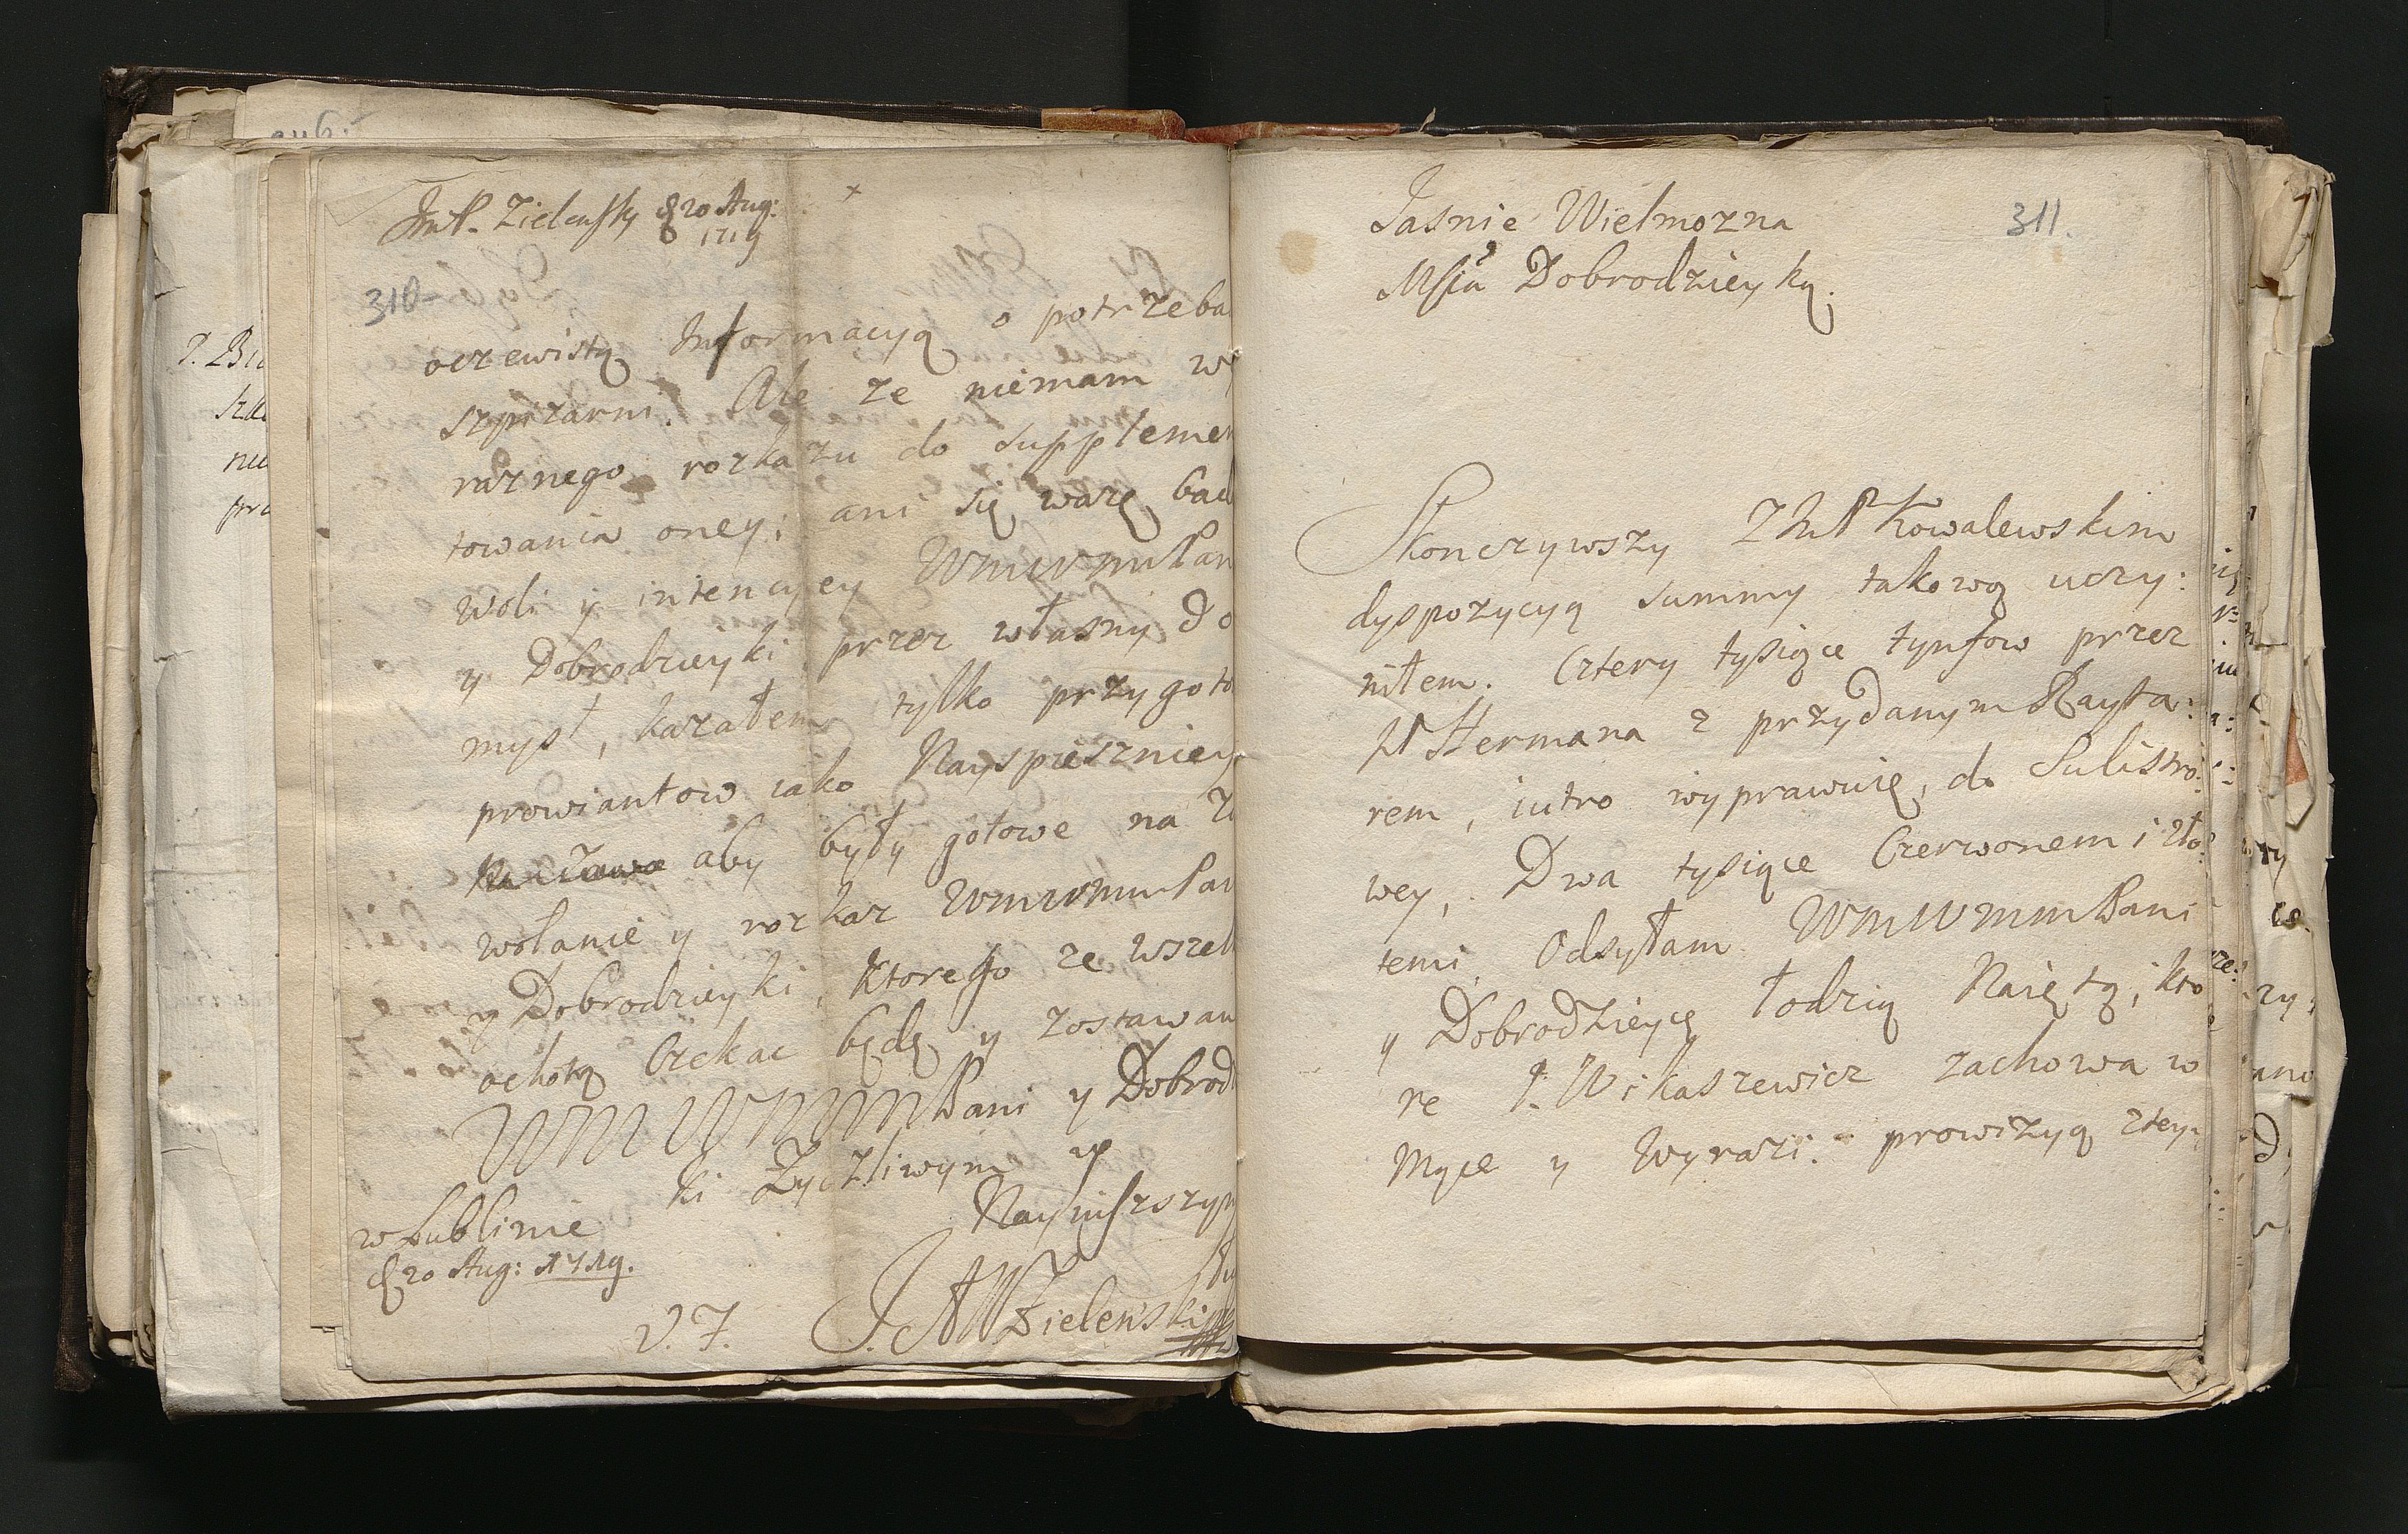 ImP. Zielensky d 20 Aug:
1719
310
oczewistą Informacyą o potrzeba
szpizarni. Ale ze niemam wy
raznego rozkazu do supplemen
towania oney; ani się warzę bad
woli y intencyey WMWMMPan
y Dobrodzieyki przez własny do
mysł, kazałem tylko przygoto
prowiantow iako Nayspieszniey
aby były gotowe na za
wołanie y rozkaz WMWMMPan
y Dobrodzieyki, ktorego ze wszel
ochotą Czekac będę y zostawam
WMWMMPani y Dobrod
ki Zyczliwym y
Nayniszszym
w Lublinie
d 20 Aug: 1719.
V. F. J. A Zielenski
311.
Jasnie Wielmozna
Mscia Dobrodzieyką.
Skonczywszy Z ImP Kowalewskim
dyspozycyą summy takową uczy:
niłem. Cztery tysiące tynfow przez
P Hermana z przydanym Rayta:
rem, iutro wyprawuię, do Sulistro:
wey, Dwa tysiące Czerwonemi Zło:
temi Odsyłam WMWMMPani
y Dobrodzieyce łodzią Naiętą, kto
re P. Wikaszewicz zachowa w
Mące y Wyrazi. prowizyą ztey: